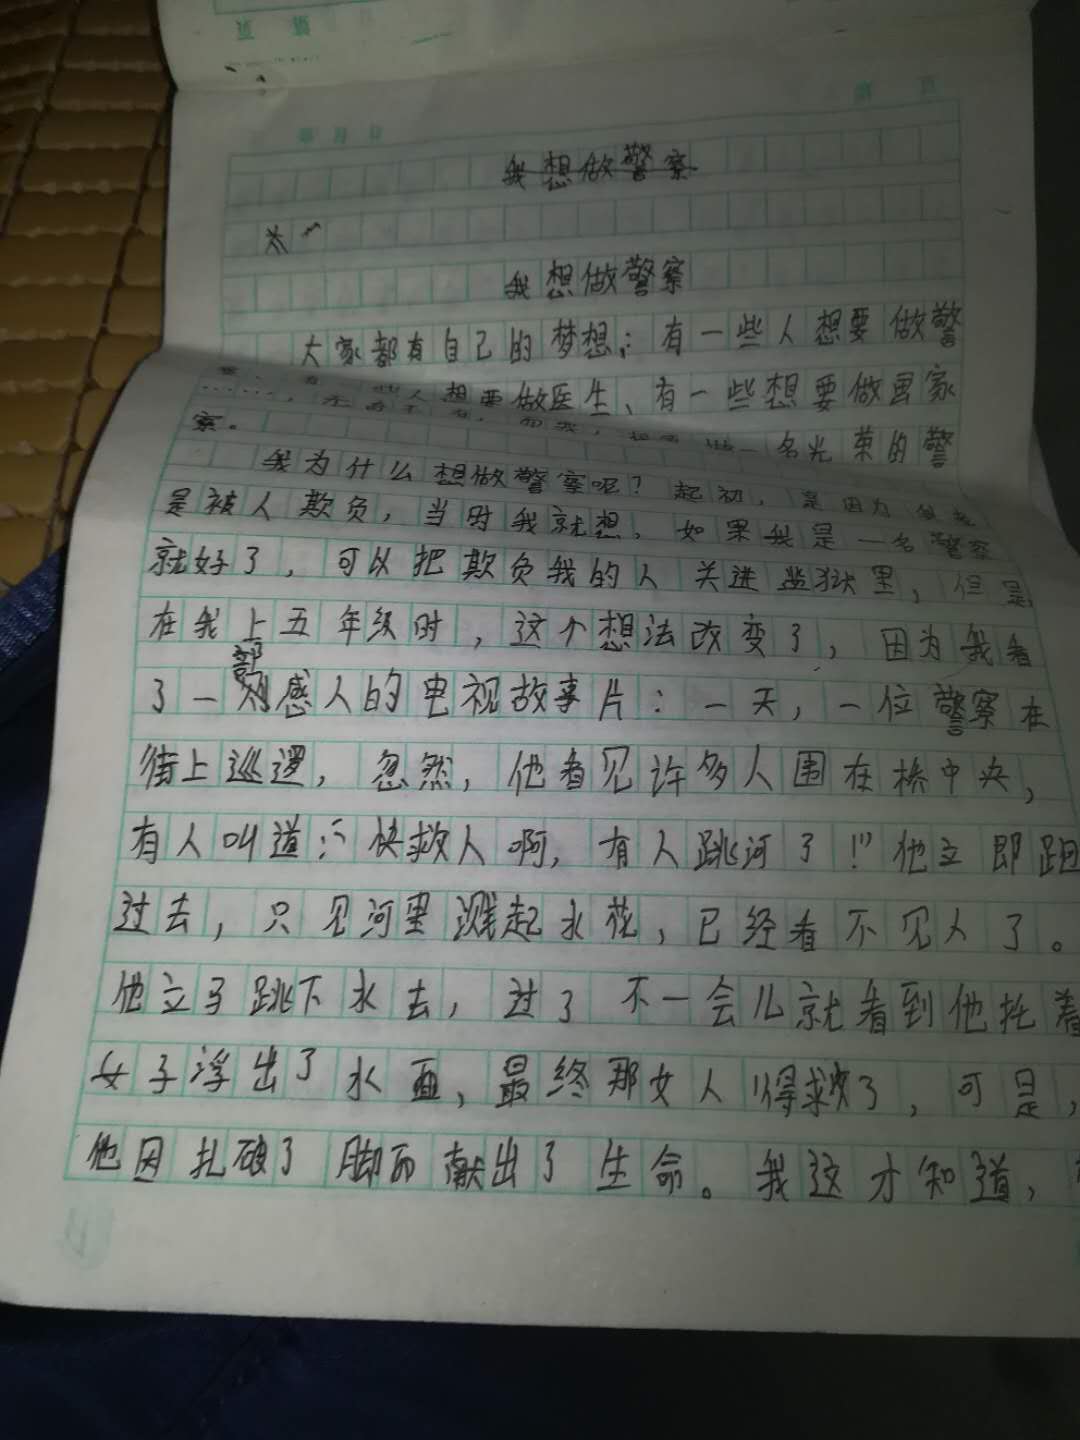 我想做警察
我想做警察
大家都有自己的梦想：有一些人想要做警
有一些人想要做医生、有一些想要做画家
一名光荣的警
察。
我为什么想做警察呢？起初，是因为
是被人欺负，当时我就想，如果我是一名警察
就好了，可以把欺负我的人关进监狱里，但是
在我上五年级时，这个想法改变了，因为我看
了一部感人的电视故事片：一天，一位警察在
街上巡逻，忽然，他看见许多人围在桥中央，
有人叫道：“快救人啊，有人跳河了！”他立即跑
过去，只见河里溅起水花，已经看不见人了。
他立马跳下水去，过了不一会儿就看到他托着
女子浮出了水面，最终那女人得救了，可是，
他因扎破了脚而献出了生命。我这才知道，